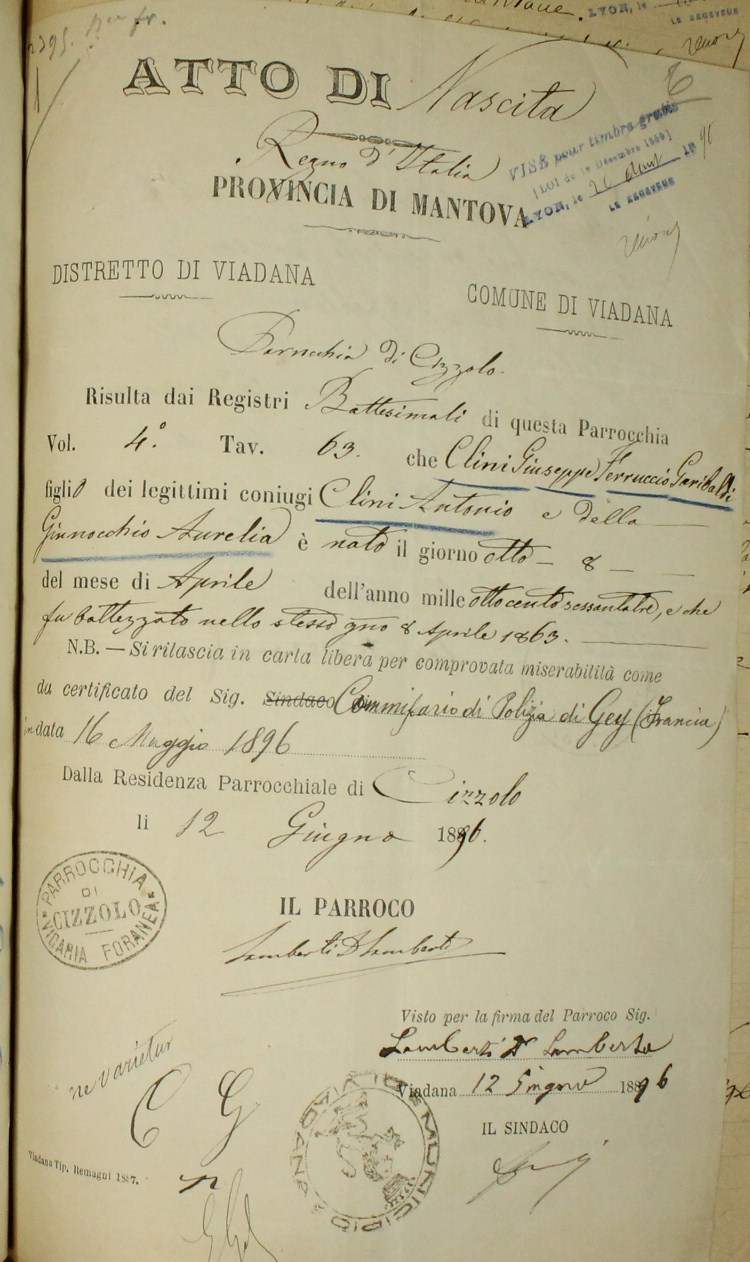 ATTO DI Nascita
Regno d'Italia
PROVINCIA DI MANTOVA
VISÉ pour timbre gratis
LYON, le
LE RECEVEUR
LYON, le 26 Aout 1896
LE RECEVEUR
DISTRETTO DI VIADANA
COMUNE DI VIADANA
Parrochia di Cizzolo.
Risulta dai Registri Battesimali di questa Parrocchia
Vol. 4º. Tav. 63. che Clini Giuseppe Ferruccio Garibaldi
figlio dei legittimi coniugi Clini Antonio e della
Ginnocchio Aurelia è nato il giorno otto - 8 -
del mese di Aprile dell'anno mille ottocentosessantatre, e che
fu battezzato nello stesso gno 8 Aprile 1863.
N.B. — Si rilascia in carta libera per comprovata miserabilità come
da certificato del Sig. Sindaco Commissario di Polizia di Gey (Francia)
in data 16 Maggio 1896
Dalla Residenza Parrocchiale di Cizzolo
li 12 Giugno 1896.
PARROCCHIA DI CIZZOLO VICARIA FORANEA
IL PARROCO
Lamberti D Lamberto
Visto per la firma del Parroco Sig.
Lamberti D Lamberto
Viadana 12 Giugno 1896
IL SINDACO
ne varietur
C G
MUNICIPIO DI VIADANA
Viadana Tip. Remagni 1887.